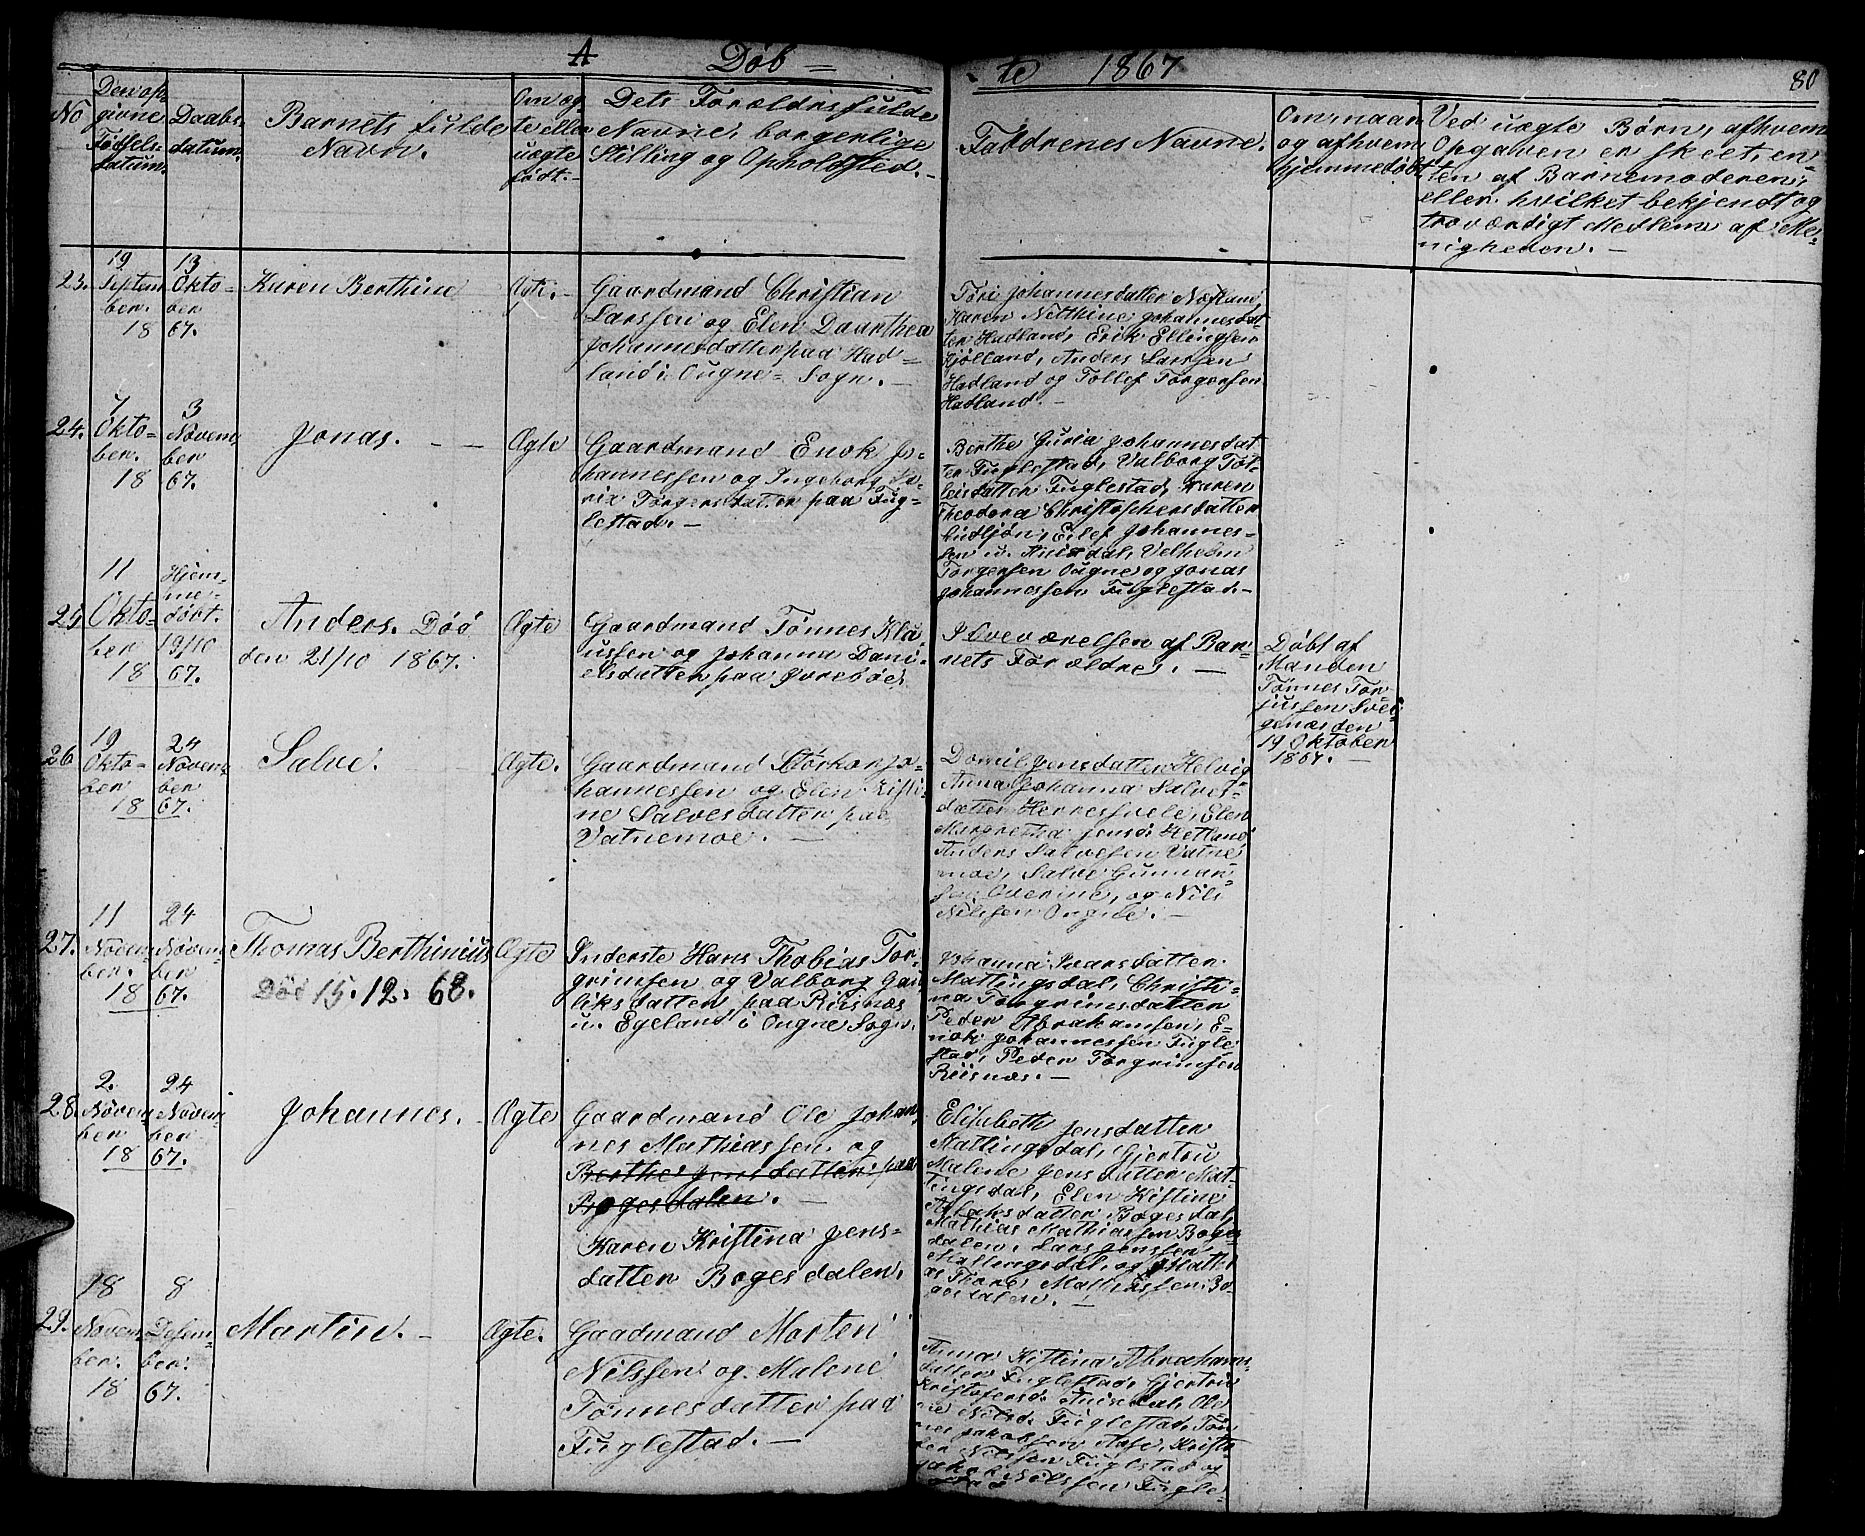 A Døb = te 1867 80
No
Den op-
givne
Fødsels-
datum.
Daabs-
datum.
Barnets fulde
Navn.
Om æg-
te eller
uægte
født.-
Dets Forældres fulde
Navne, borgerlige
Stilling og Opholdsted.-
Faddrenes Navne.
Om, naar
og afhvem
hjemmedøbt
Ved uægte Børn, afhvem
Opgaven er skeet, en-
ten af Barnemoderen,
eller hvilket bekjendt og
troværdigt Medlem af Me-
nigheden.-
23.
19
Septem
ber.
18
13
Okto-
ber
67.
Karen Berthine
Ægte.-
Gaardmand Christian
Larssen og Elen Daarthea
Johannesdatter paa Had-
land i Ougne-Sogn.-
Tori Johannesdatter
Karen Netthine Johannesdat-
ter Hadland, Erik Ellingsen
Anders Larssen
Hadland og Tollef Torgersen
Hadland.-
24.
7
Okto-
ber.
18
3
Novem
ber
67.
Jonas. - -
Ægte
Gaardmand Enok Jo-
hannessen og Ingeborg
Torgersdatter paa Fug-
lestad.-
Berthe Guria Johannesdat
ter Fuglestad, Valborg
Fuglestad, Karen
Theodora Christophersdatter
Eilef Johannes-
sen Velhelm
Torgersen Ougne og Jonas
Johannessen Fuglestad.-
25
11
Okto-
ber
18
Hjem-
me-
døbt.
19/10
67.
Anders. Død
den 21/10 1867.
Ægte
Gaardmand Tønnes Kla-
ussen og Johanna Dani-
elsdatter paa
I Overværelsen af Bar-
nets Forældre. -
Døbt af
Manden
Tønnes Tor-
jussen
den
19 Oktober
1867.-
26
19
Okto-
ber
18
24
Novem-
ber
67.
Salve.
Ægte.
Gaardmand Størkor Jo-
hannessen og Elen Kisti-
ne Salvesdatter paa
Vatnemoe. -
Jensdatter Helvig
Anna Johanna Salves-
datter Elen
Margretha Hetland,
Anders Salvesen Vatne
moe, Salve Gunnar-
sen og Nils
Nilssen Ougne.-
27.
11
Novem-
ber.
18
24
Novem-
ber
67.
Thomas Berthinius
Død 15. 12. 68.
Ægte
Inderste Hans Thobias Tor-
grimsen og Valborg
datter paa Riisnæs
u. Egeland i Ougne Sogn.
Johanna Ivarsdatter
Mattingsdal, Christi-
na Torgrimsdatter
Peder Abrahamsen, E-
nok Johannessen Fugle
stad, Peder Torgrimsen
Riisnæs.-
28.
2.
Novem-
ber
18
24
Novem-
ber
67.
Johannes.
Ægte
Gaardmand Ole Johan
nes Mathiassen og
Berthe Jensdatter paa
Bøgesdalen. -
Karen Kristina Jens-
datter Bøgesdalen.
Elisabeth Jensdatter
Mattingsdal, Gjertru
Malene Jensdatter Mat-
tingsdal, Elen Kistine
Aslaksdatter Bøgesdal,
Mathias Mathiassen Bøges
dalen, Lars Jenssen
Mattingsdal, og Matthi
as Tore Mathiassen Bø-
gesdalen.-
29.
18
Novem
ber.
18
8
Desem-
ber.
67.
Martin. -
Ægte.
Gaadmand Morten
Nilssen og Malene
Tønnesdatter paa
Fuglestad.-
Anna Kistina Abrahams-
datter Fuglestad, Gjertru
Kristofersd. Ole
Nilsd. Fuglestad, Tøn
nes Jakobsen
Nilssen Fuglestad og
Jakob Nilssen Fugle-
stad